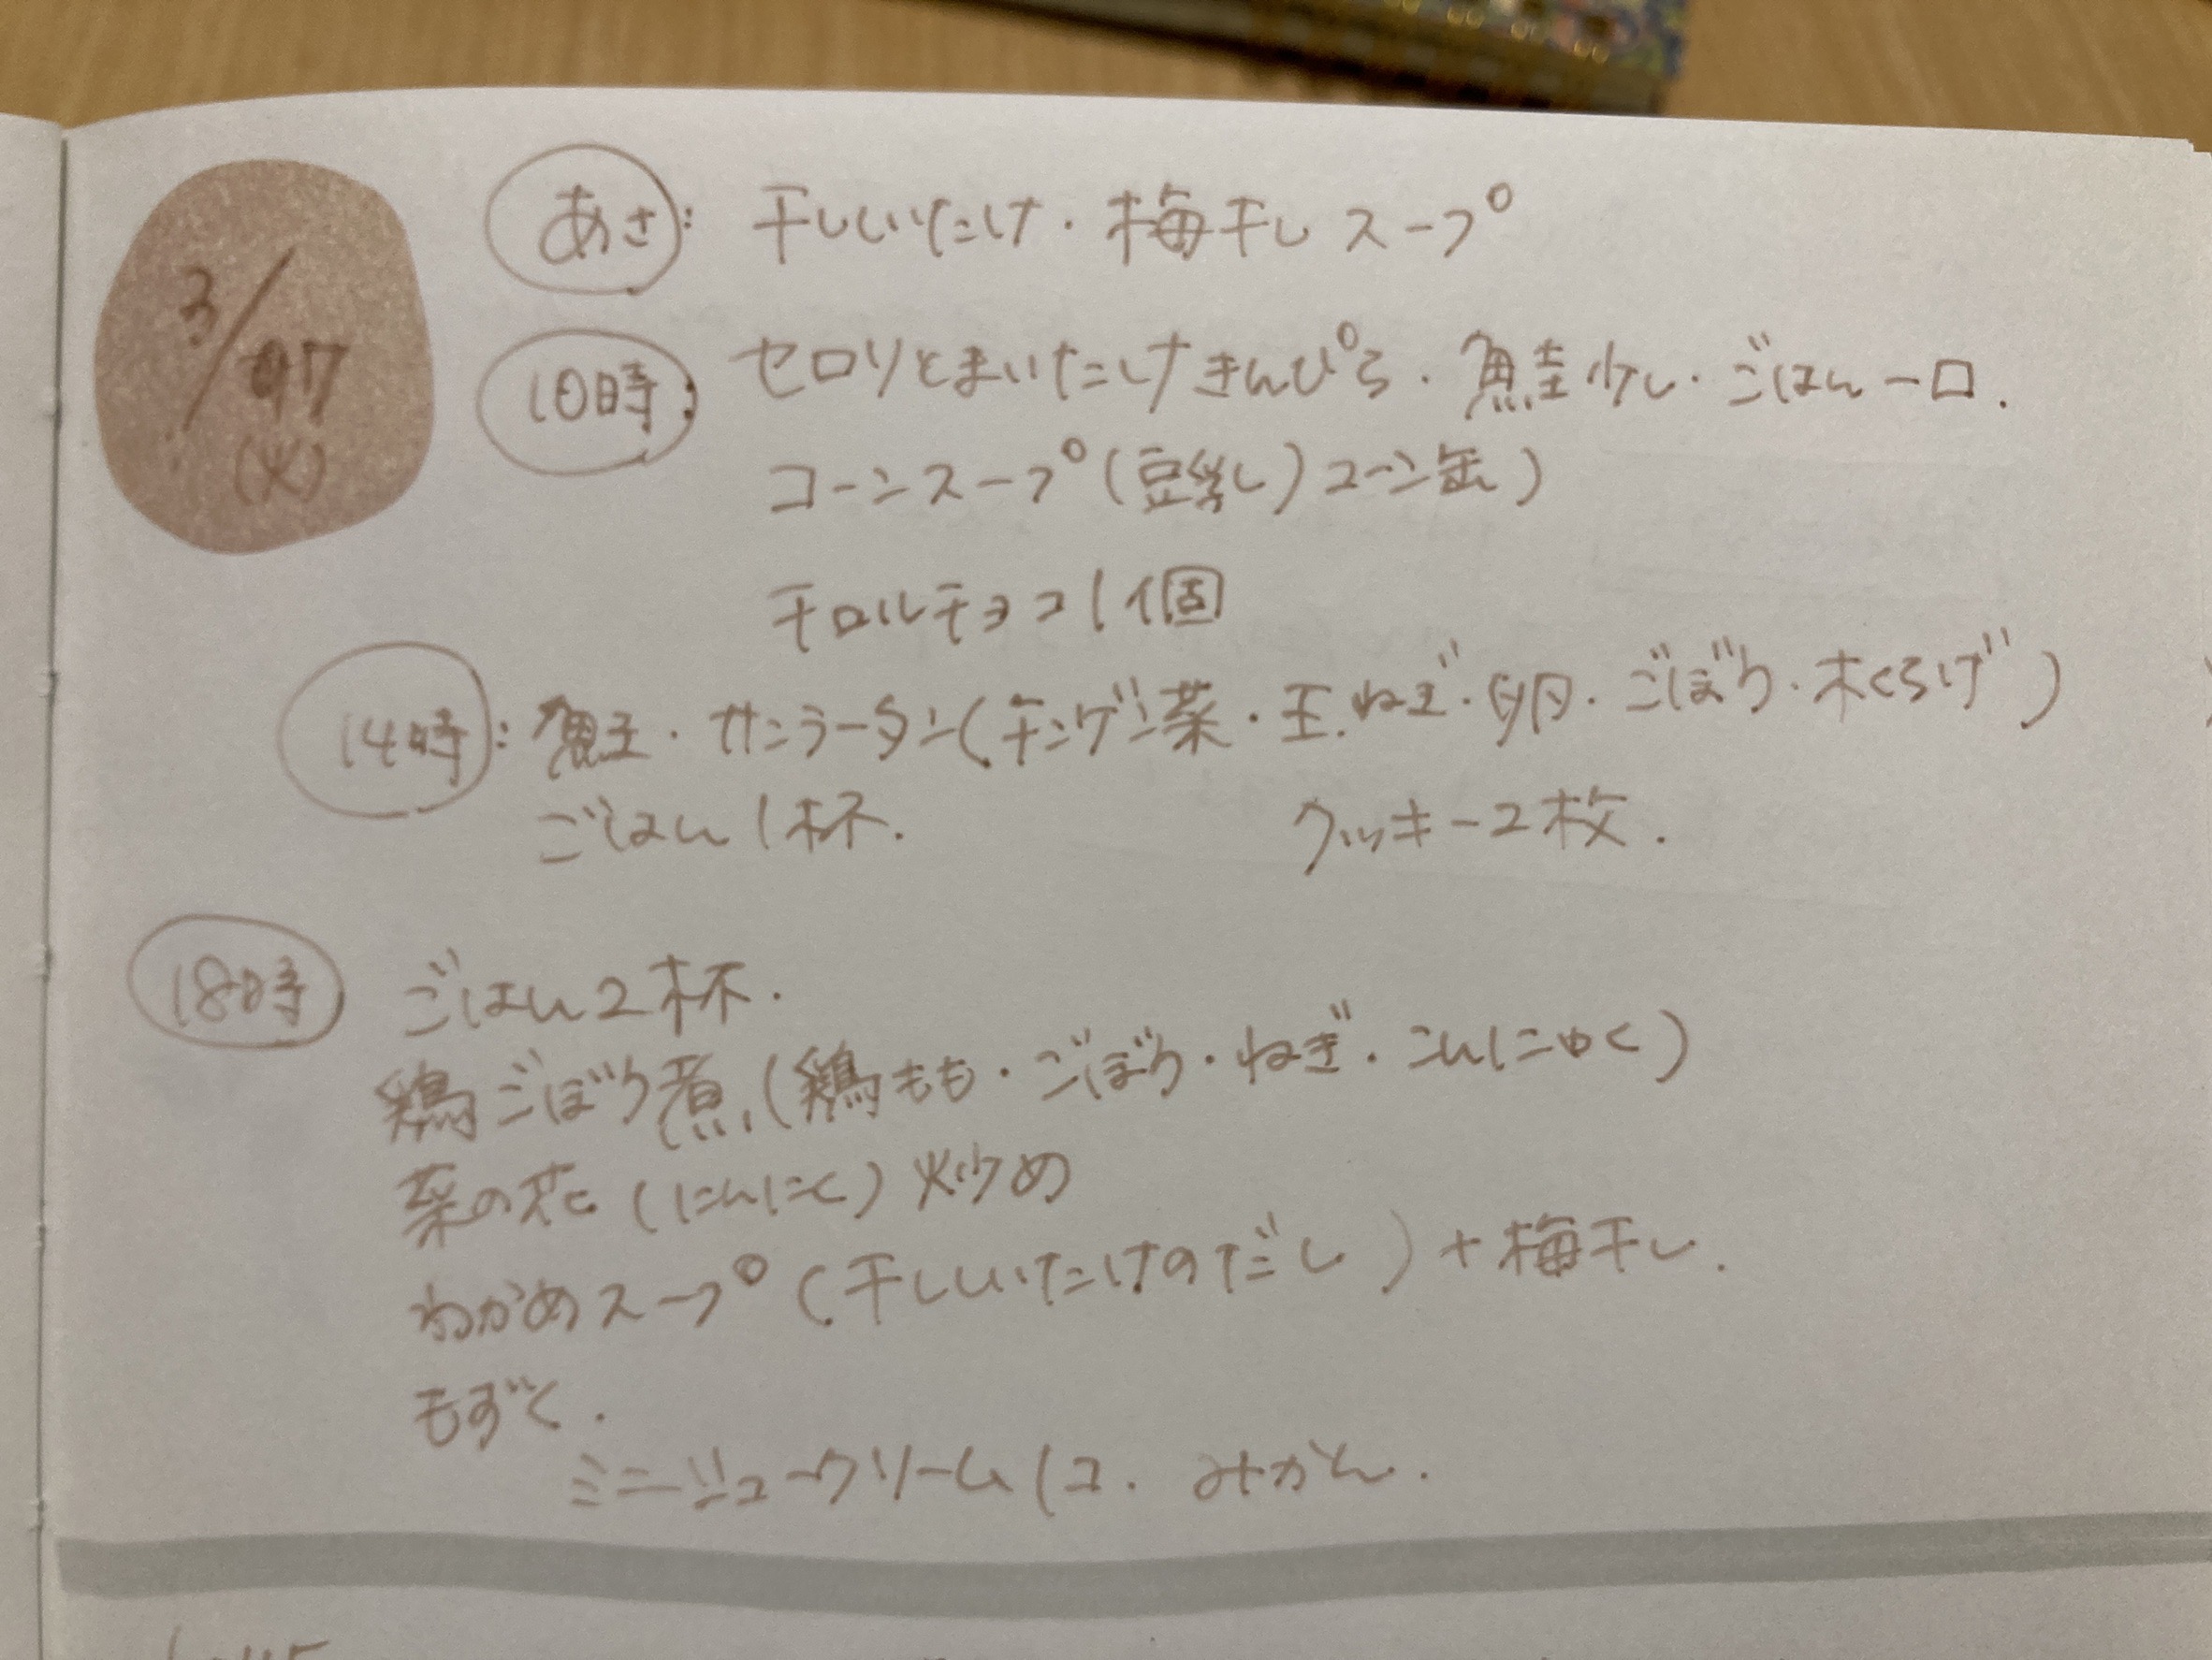 3/17
(火)
あさ: 干ししいたけ・梅干しスープ
10時: セロリとまいたけきんぴら・鮭少し・ごはん一口.
コーンスープ(豆乳し)コーン缶)
チロルチョコ1個
14時: 鮭・サンラータン(チンゲン菜・玉ねぎ・卵・ごぼう・木くらげ)
ごはん1杯. クッキー2枚.
18時 ごはん2杯.
鶏ごぼう煮(鶏もも・ごぼう・ねぎ・こんにゃく)
菜の花(にんにく)炒め
わかめスープ(干ししいたけのだし)+梅干し.
もずく.
ミニシュークリーム1コ. みかん.